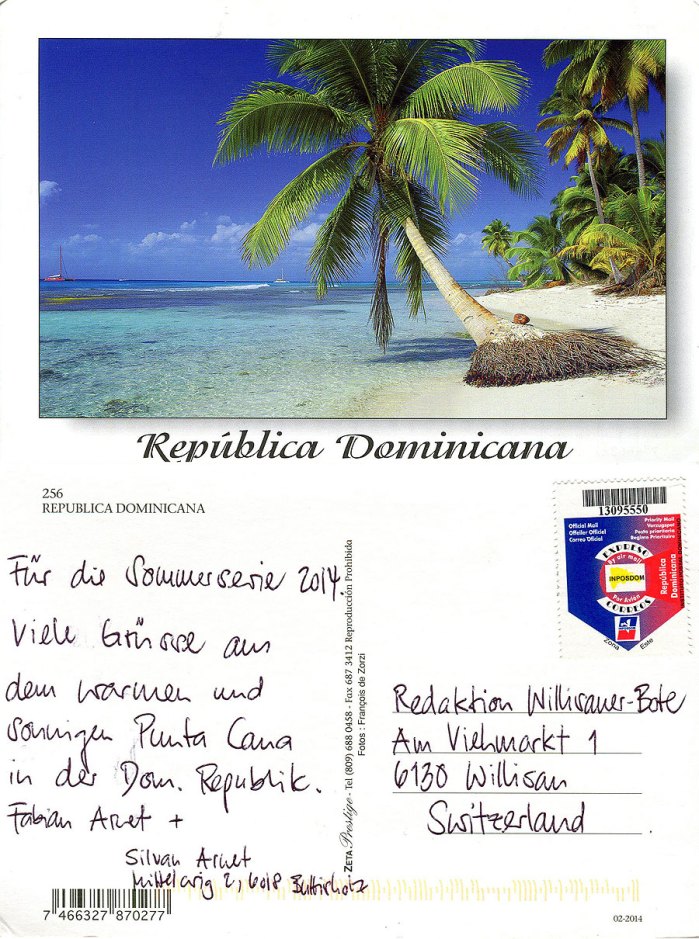 República Dominicana
256
REPUBLICA DOMINICANA
Für die Sommerserie 2014.
Viele Grüsse aus
dem warmen und
sonnigen Punta Cana
in der Dom. Republik.
Fabian Arnet +
Silvan Arnet
Mittelarig 2, 6018 Buttisholz
7 466327 870277
ZETA Prestige - Tel (809) 688 0458 - Fax 687 3412 Reproducción Prohibida
Fotos : François de Zorzi
13095550
Official Mail
Offeller Oficiel
Correo Oficial
Priority Mail
Vorzugspost
Posta prioritaria
Regime Prioritaire
EXPRESO
By air mail
INPOSDOM
Par Avión
CORREOS
República
Dominicana
Zona Este
Redaktion Willisauer-Bote
Am Viehmarkt 1
6130 Willisau
Switzerland
02-2014